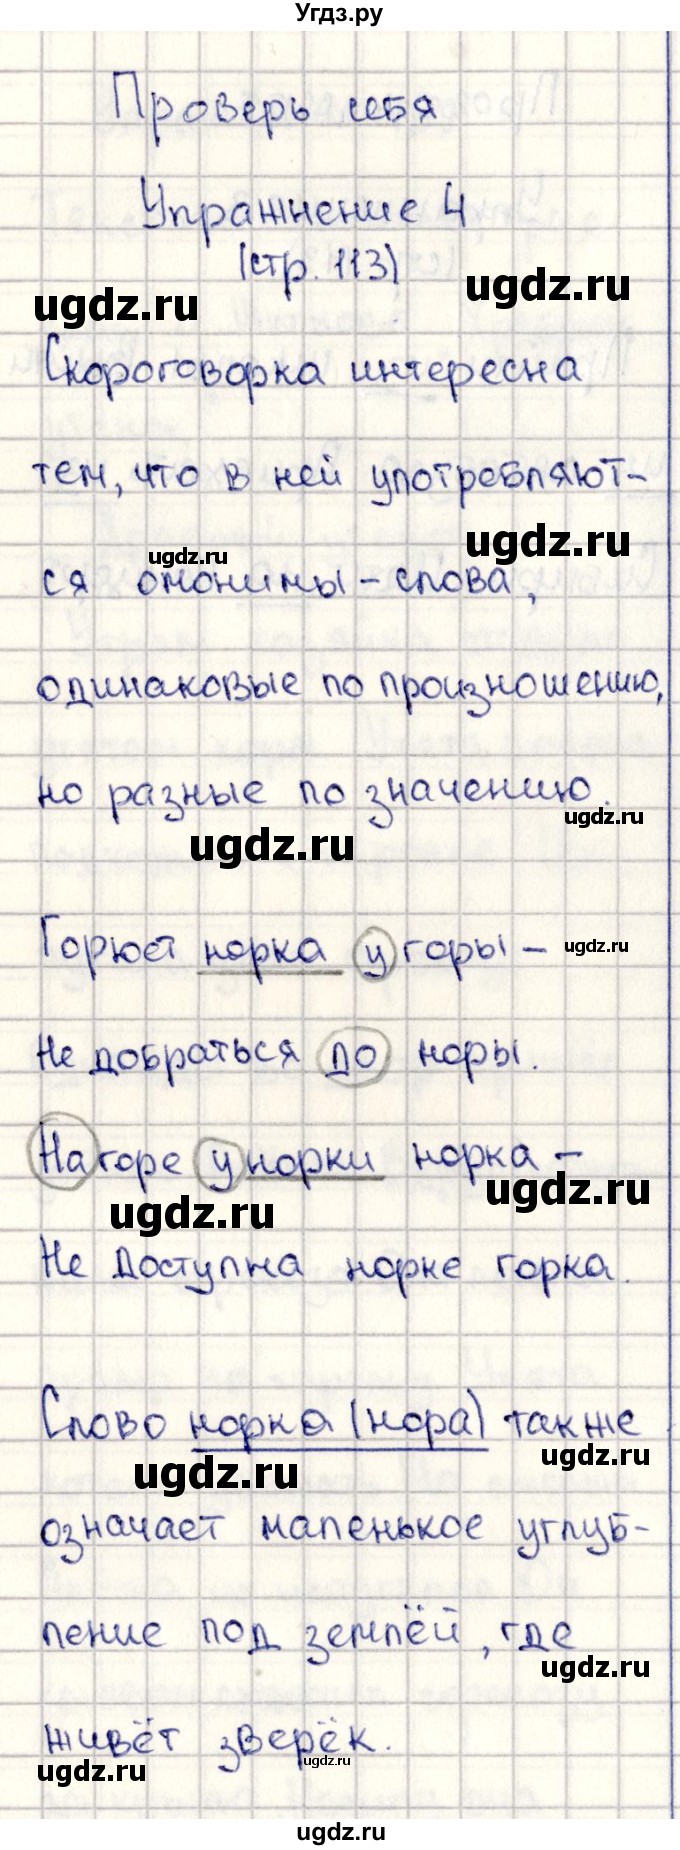 Угдз.ру
Проверь себя
Упражнение 4
(стр. 113)
ugdz.ru ugdz.ru
Скороговорка интересна
тем, что в ней употребляют-
ugdz.ru ugdz.ru
ся омонимы - слова,
одинаковые по произношению,
но разные по значению.
ugdz.ru
ugdz.ru
Горюет норка у горы - ugdz.ru
Не добраться до норы.
На горе у норки норка -
ugdz.ru ugdz.ru
Не доступна норке горка.
Слово норка (нора) также
ugdz.ru ugdz.ru
означает маленькое углуб-
ление под землёй, где
ugdz.ru
живёт зверёк.
ugdz.ru ugdz.ru
ugdz.ru